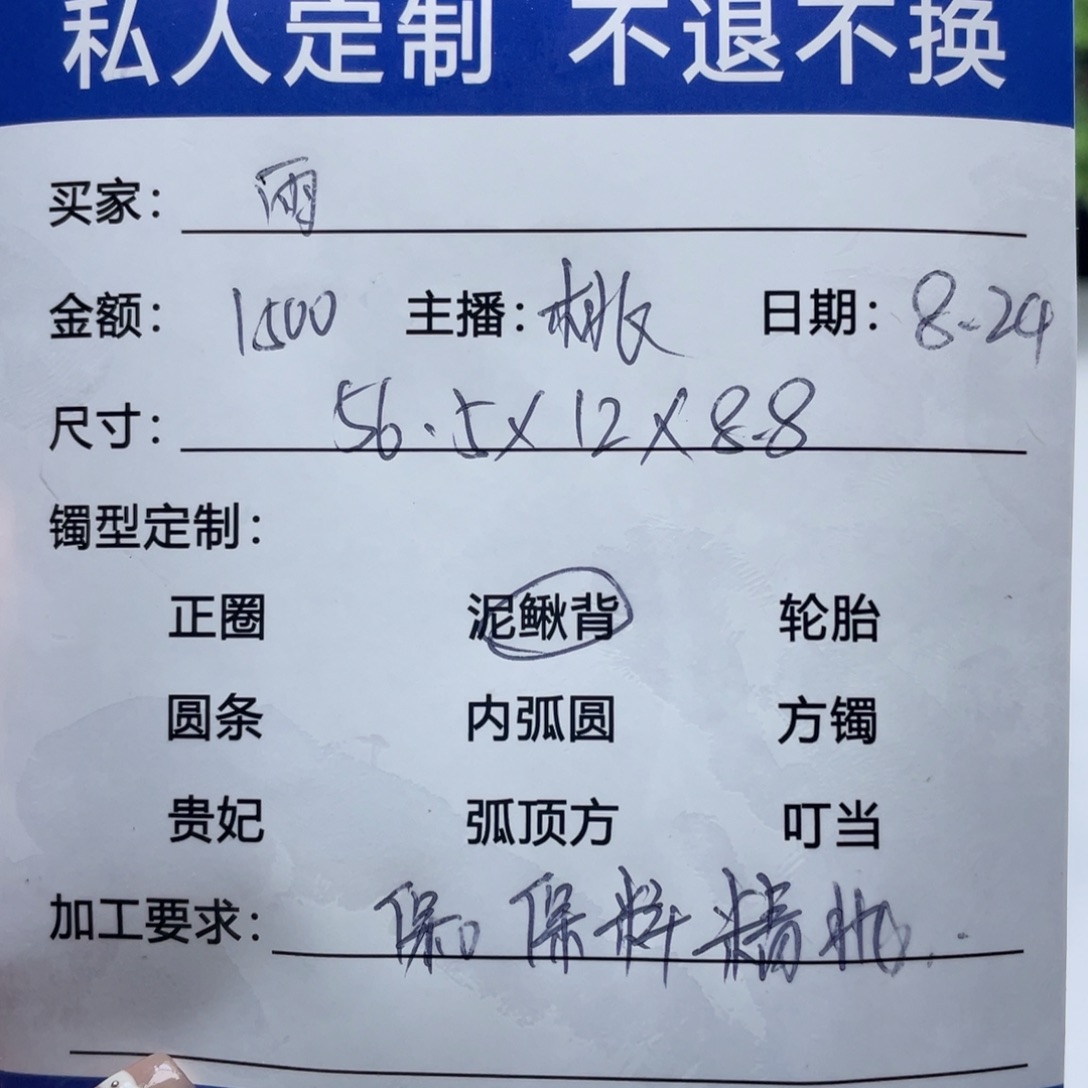 私人定制 不退不换
买家： 雨
金额： 1500 主播： 日期： 8.24
尺寸： 56.5×12×8.8
镯型定制：
正圈 泥鳅背 轮胎
圆条 内弧圆 方镯
贵妃 弧顶方 叮当
加工要求： 保 保料 精